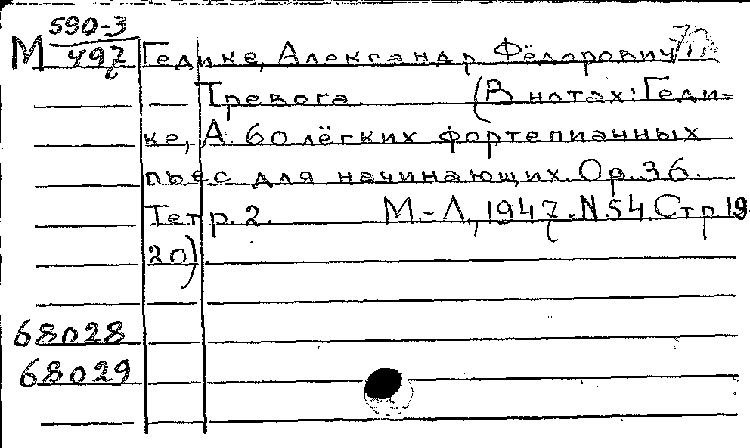 590-3
М 497 Гедике, Александр Фёдорович
Тревога (В нотах: Геди-
ке, А. 60 лёгких фортепианных
пьес для начинающих. Ор. 36.
Тетр. 2. М-Л, 1947. N 54. Стр 19-
20)
68028
68029